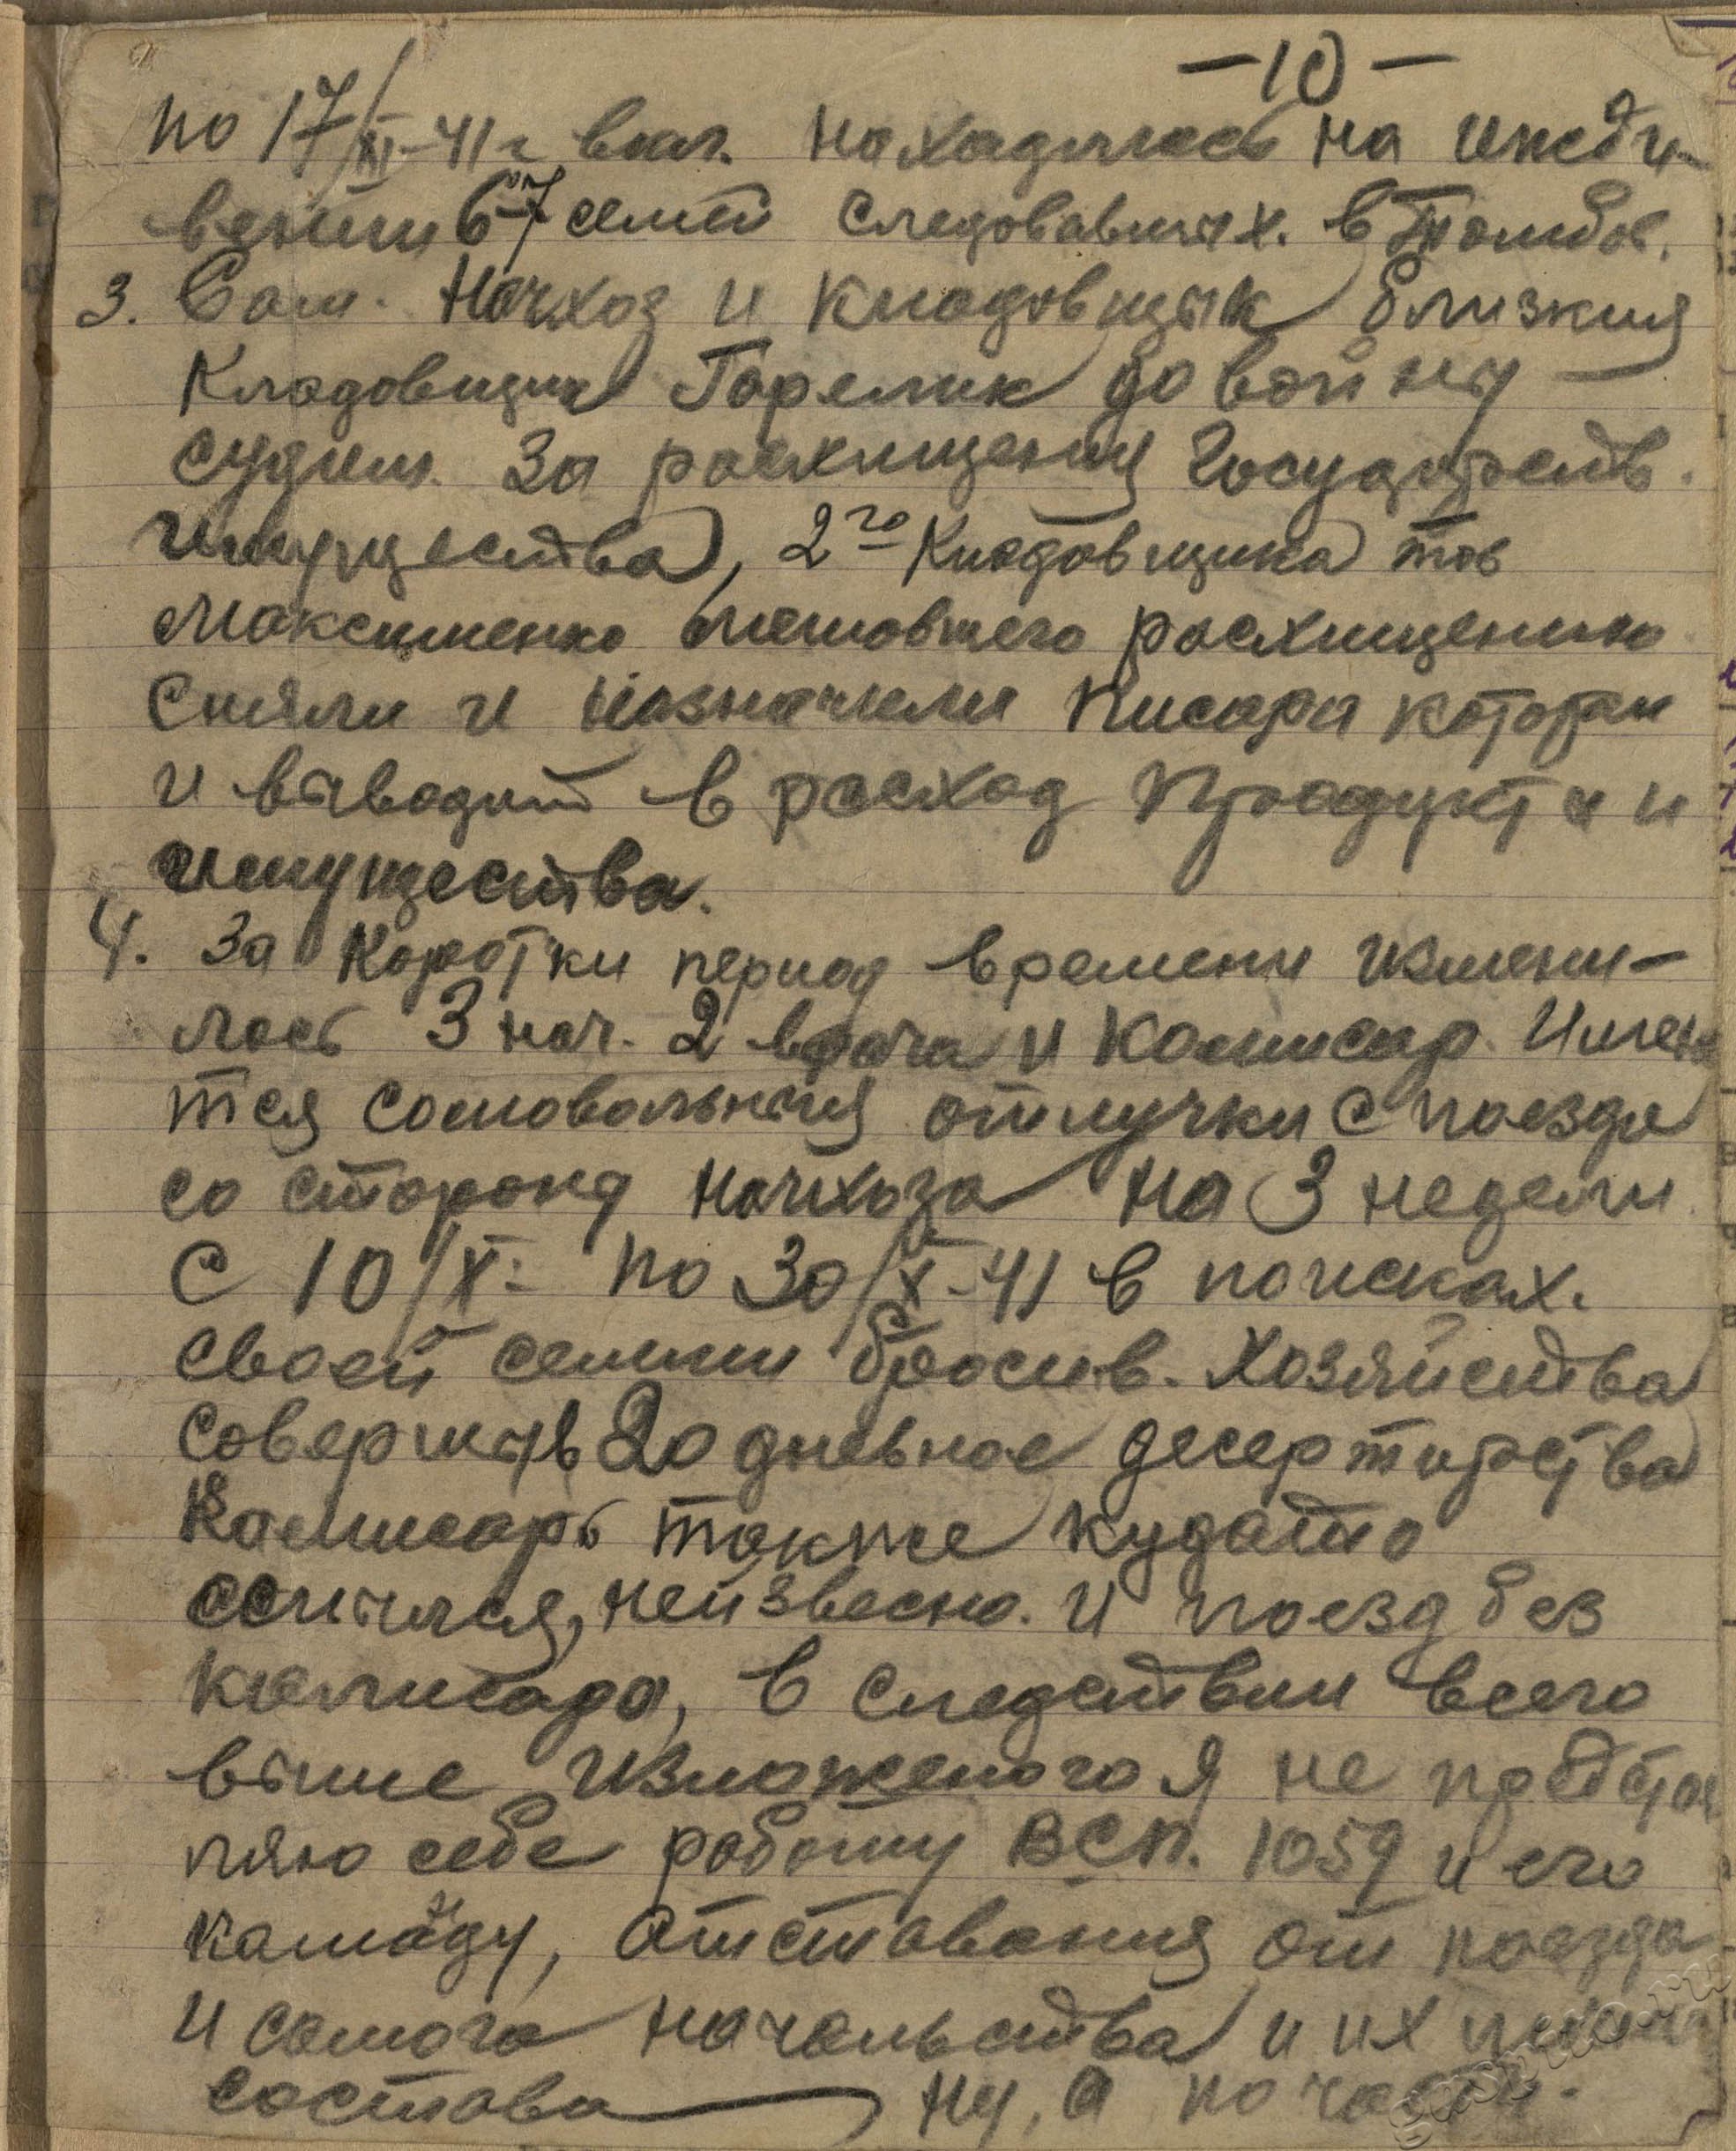 — 10 —
по 17/XI-41 г. вкл. находилось на ижди
вении 6-7 семей следовавших. в Тамбов.
3. Сам. Начхоз и кладовщик близкия
Кладовщик Горелик до войны —
судим. За расхищения Государств.
имущества, 2го Кладовщика тов
Максименко мешовшего расхищению
Сняли и назначили Писаря котоpaи
и выводит в расход Продукты и
имущества.
4. За Коротки период времени изменi-
лось 3 нач. 2 врача и Комисар. Имею
тся самовольныя отлучки с поезда
со стороны Начхоза на 3 недели
С 10/X- по 30/X-41 в поисках.
своей семьи бросив. хозяйства
совершыв 20 дневное десертирства
Комисаръ также кудато
смылся, неизвесно. и поезд без
комисара, в следствии всего
выше изложеного я не предстов
ляю себе работу ВСП. 1059 и его
команду, отставания от поезда
и самого начальства и их
состава — ну, а по части.
gasmo.ru